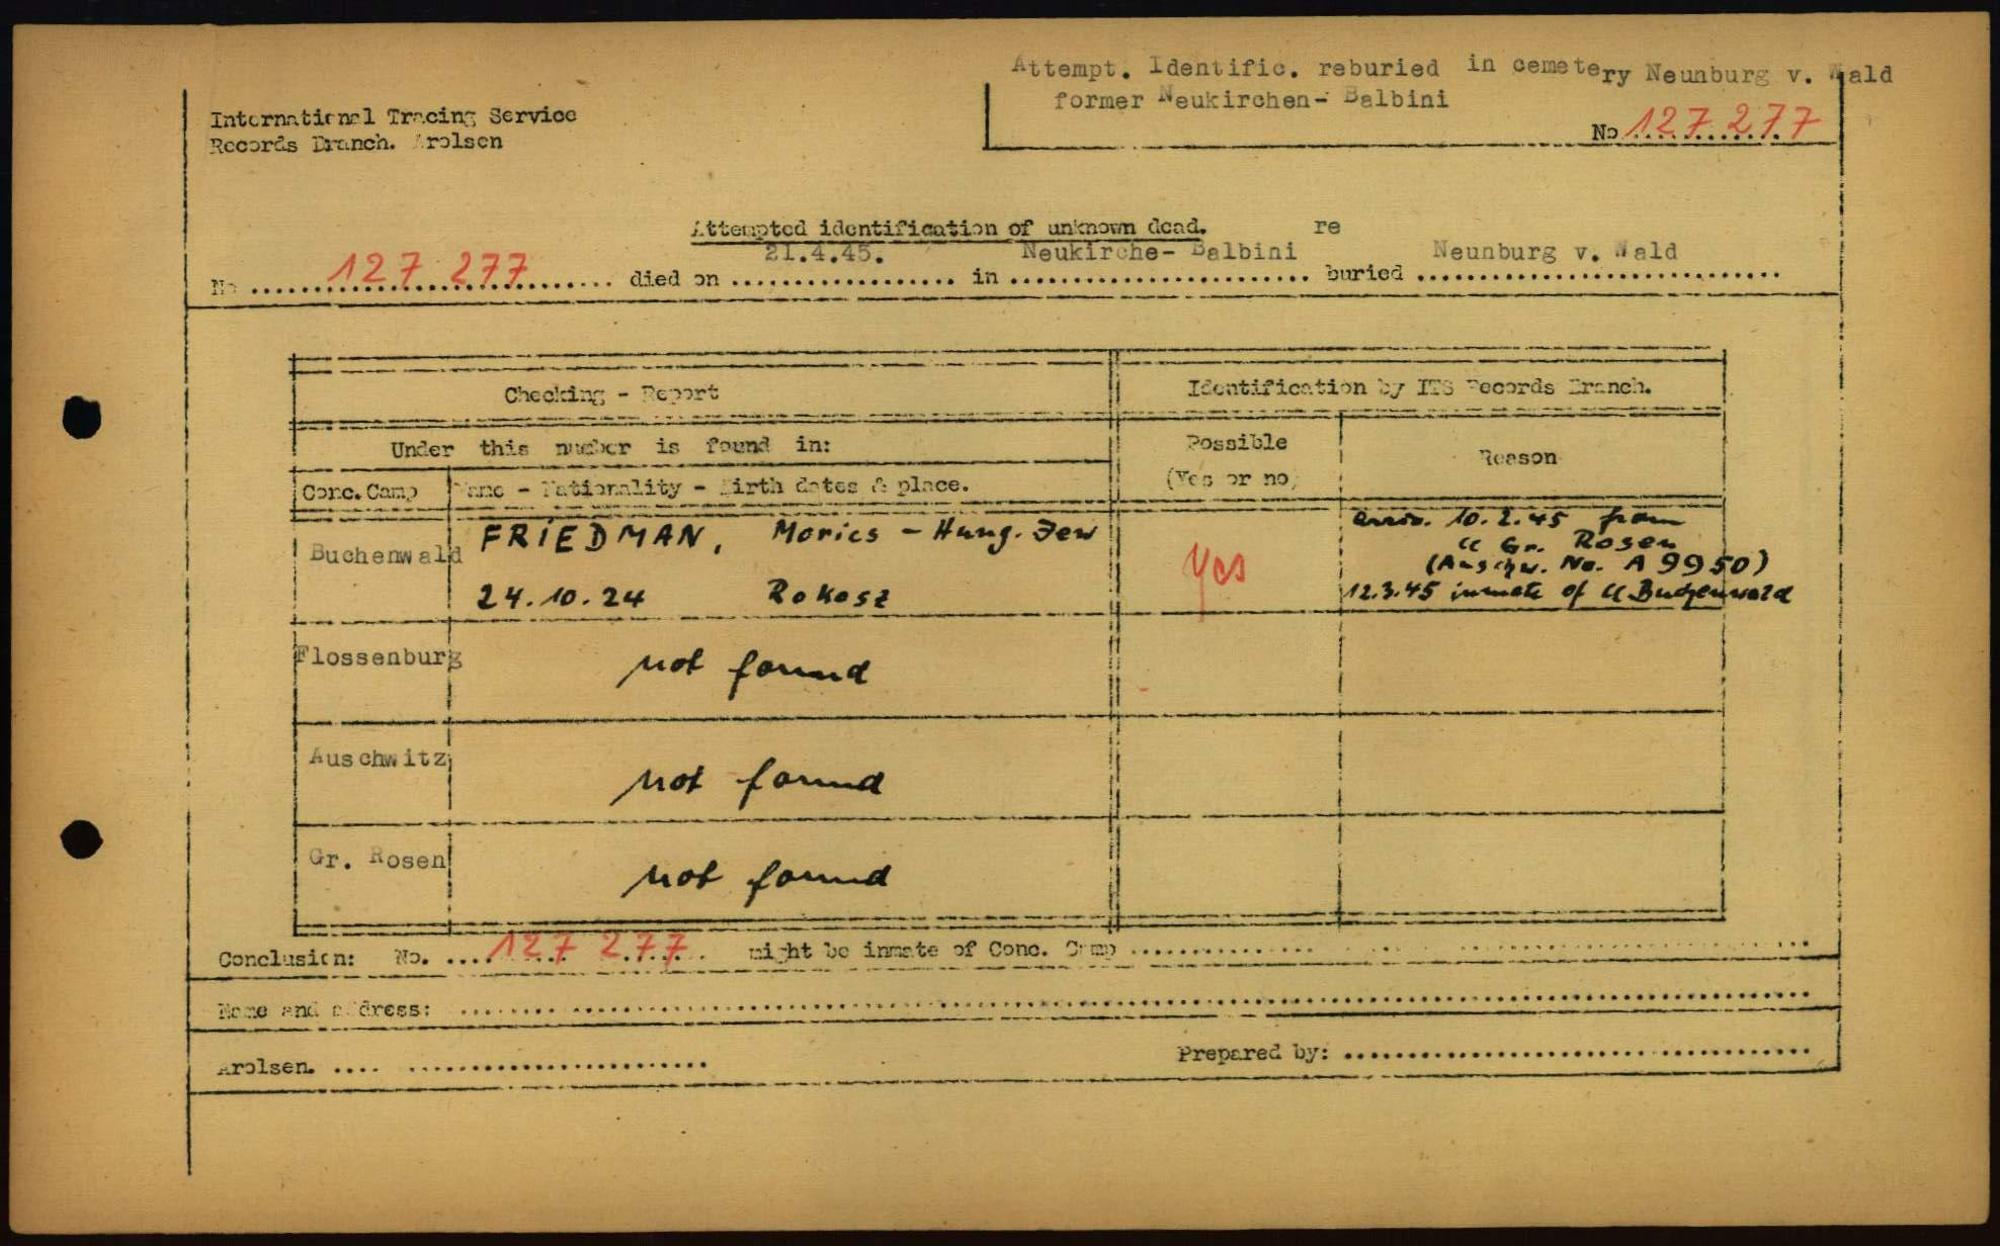 Attempt. Identific. reburied in cemetery Neunburg v. Wald
former Neukirchen- Balbini
No 127 277
International Tracing Service
Records Branch. Arolsen
Attempted identification of unknown dead.
No 127 277 died on 21.4.45. in Neukirche- Balbini re buried Neunburg v. Wald
Checking - Report
Identification by ITS Records Branch.
Under this number is found in:
Possible
(Yes or no)
Reason
Conc. Camp
Name - Nationality - Birth dates & place.
Buchenwald
FRIEDMAN, Morics - Hung. Jew
24.10.24 Rokosz
Yes
arriv. 10.2.45 from
CC Gr. Rosen
(Auschw. No. A 9950)
12.3.45 inmate of CC Buchenwald
Flossenburg
not found
Auschwitz
not found
Gr. Rosen
not found
Conclusion: No. 127 277 might be inmate of Conc. Camp
Name and address:
Arolsen.
Prepared by: